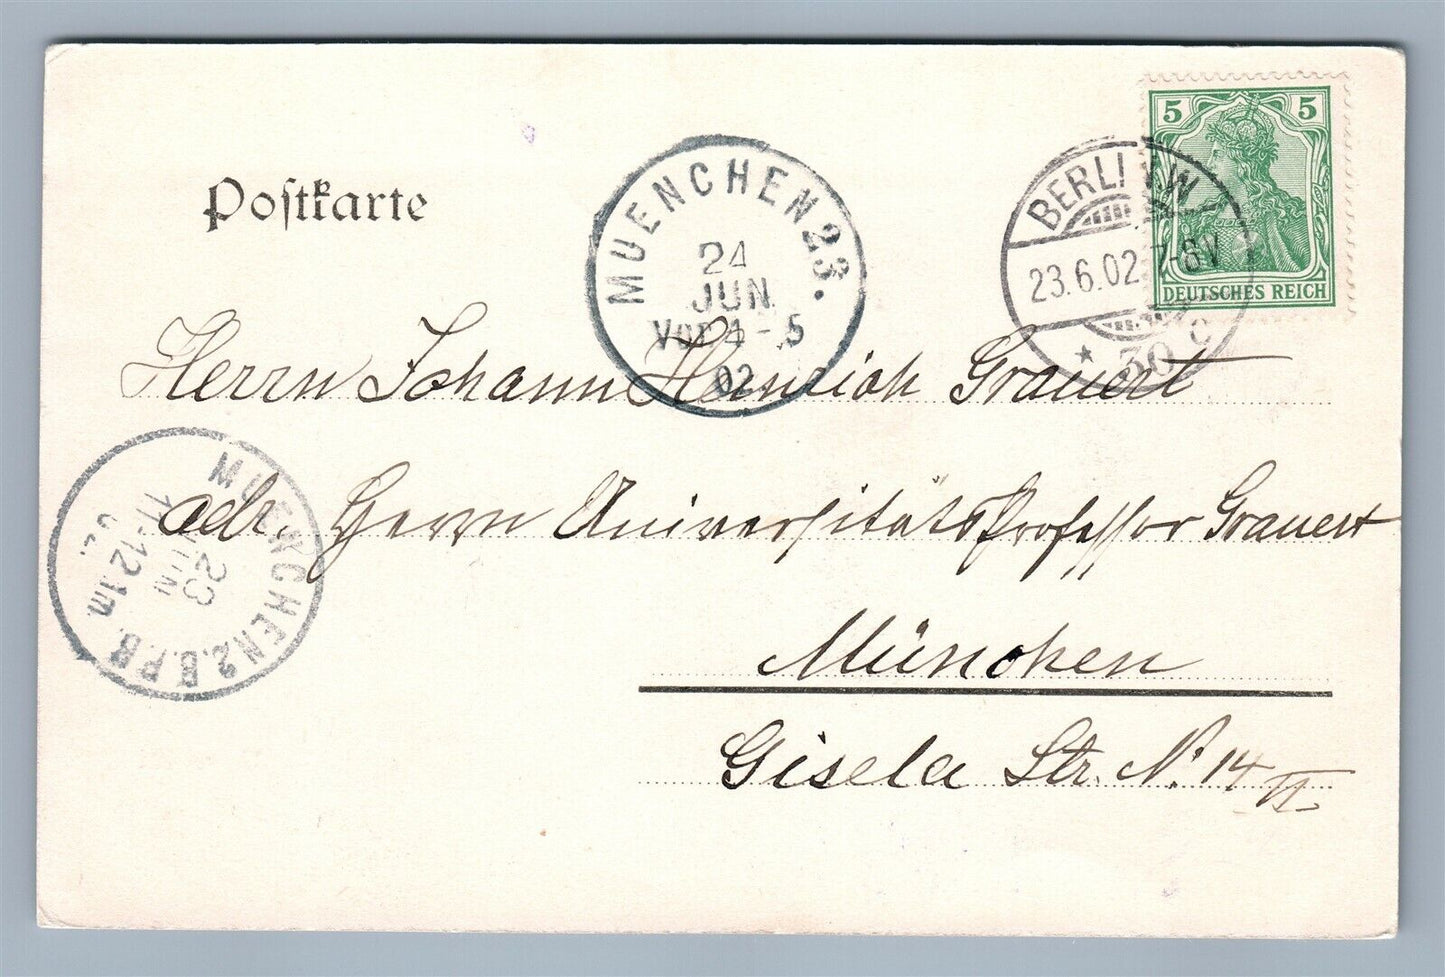 Postkarte
5 5
DEUTSCHES REICH
BERLIN W
23.6.02. 7-8V
* 30 c
MUENCHEN 23.
24
JUN
Vor 4-5
02
Herrn Johann Heinrich Grauert
adr. Herrn Universitätsprofessor Grauert
München
Gisela Str. N. 14 II
MUENCHEN 2. B.P.B.
23
JUN
11-12
02.